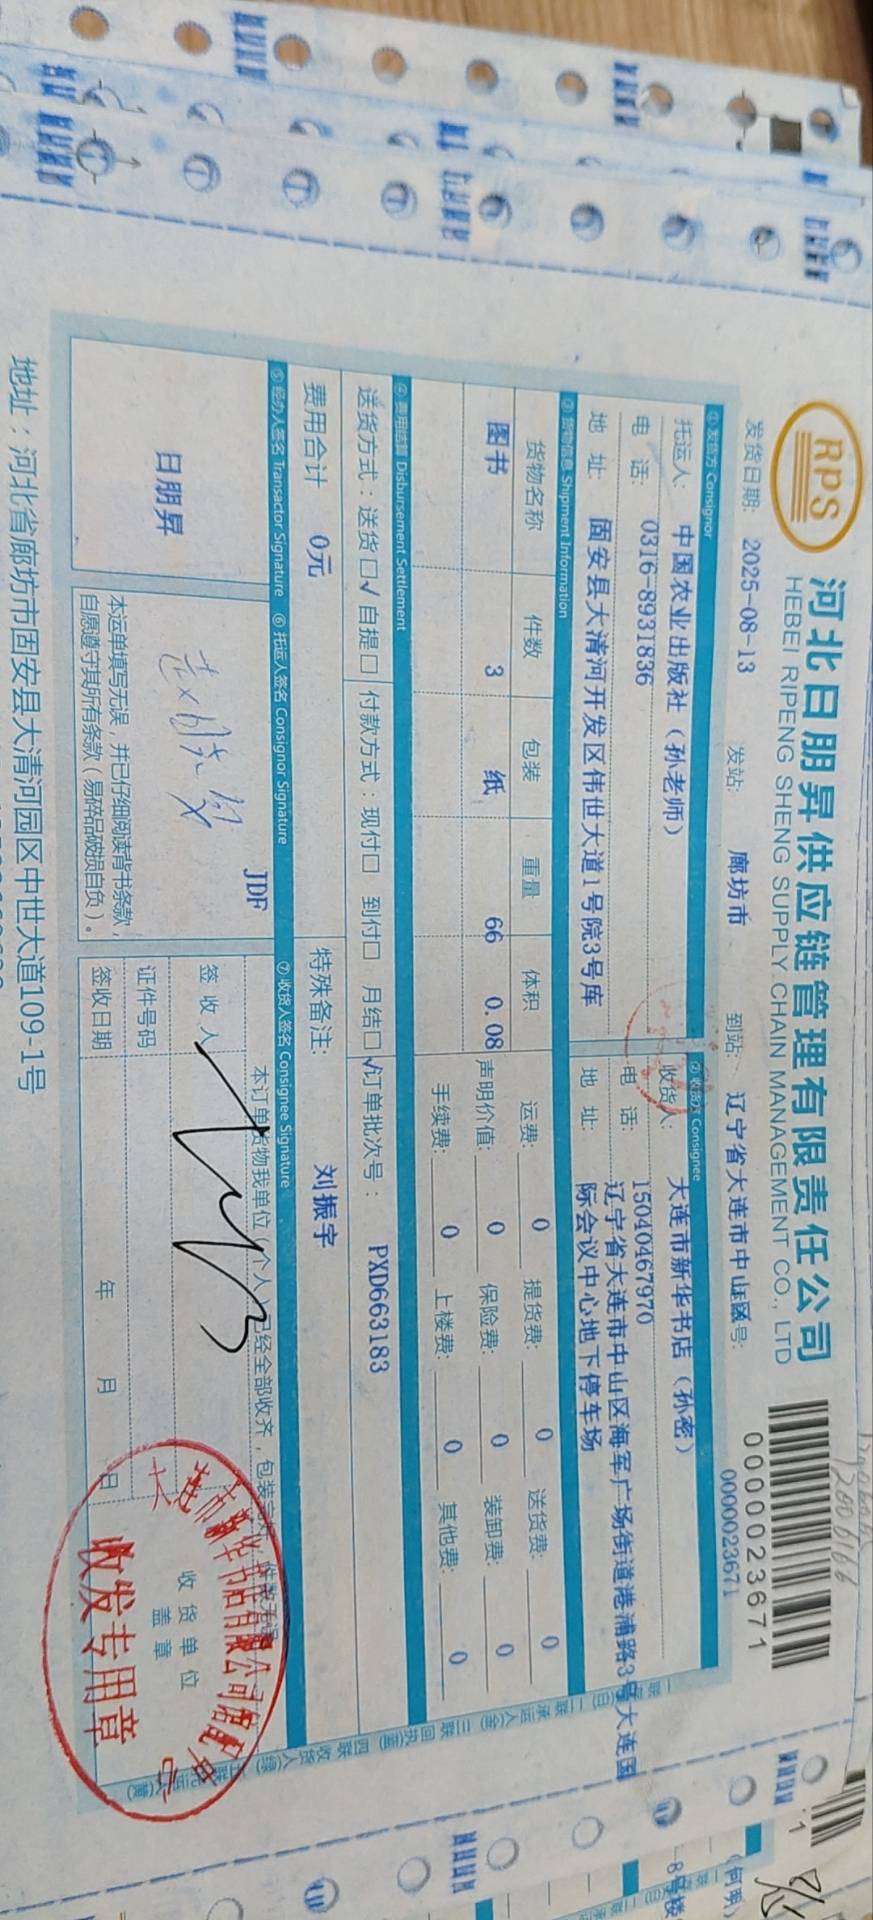 RPS
河北日朋昇供应链管理有限责任公司
HEBEI RIPENG SHENG SUPPLY CHAIN MANAGEMENT CO., LTD
0000023671
发货日期: 2025-08-13 发站: 廊坊市 到站: 辽宁省大连市中山区 号: 0000023671
①发货方 Consignor
②收货方 Consignee
托运人: 中国农业出版社（孙老师）
收货人: 大连市新华书店（孙密）
电 话: 0316-8931836
电 话: 15040467970
地 址: 固安县大清河开发区伟世大道1号院3号库
地 址: 辽宁省大连市中山区海军广场街道港浦路3号大连国
际会议中心地下停车场
③货物信息 Shipment Information
货物名称 件数 包装 重量 体积
图书 3 纸 66 0.08
运费: 0 提货费: 0 送货费: 0
声明价值: 0 保险费: 0 装卸费: 0
手续费: 0 上楼费: 0 其他费: 0
④费用结算 Disbursement Settlement
送货方式：送货□√ 自提□ 付款方式：现付□ 到付□ 月结□√ 订单批次号： PXD663183
费用合计 0元 特殊备注: 刘振宇
⑤经办人签名 Transactor Signature ⑥托运人签名 Consignor Signature ⑦收货人签名 Consignee Signature
日朋昇
JDF
本运单填写无误，并已仔细阅读背书条款，
自愿遵守其所有条款（易碎品破损自负）。
本订单货物我单位（个人）已经全部收齐，包装
签收人
证件号码
签收日期 年 月 日
收货单位
盖章
收发专用章
地址：河北省廊坊市固安县大清河园区中世大道109-1号